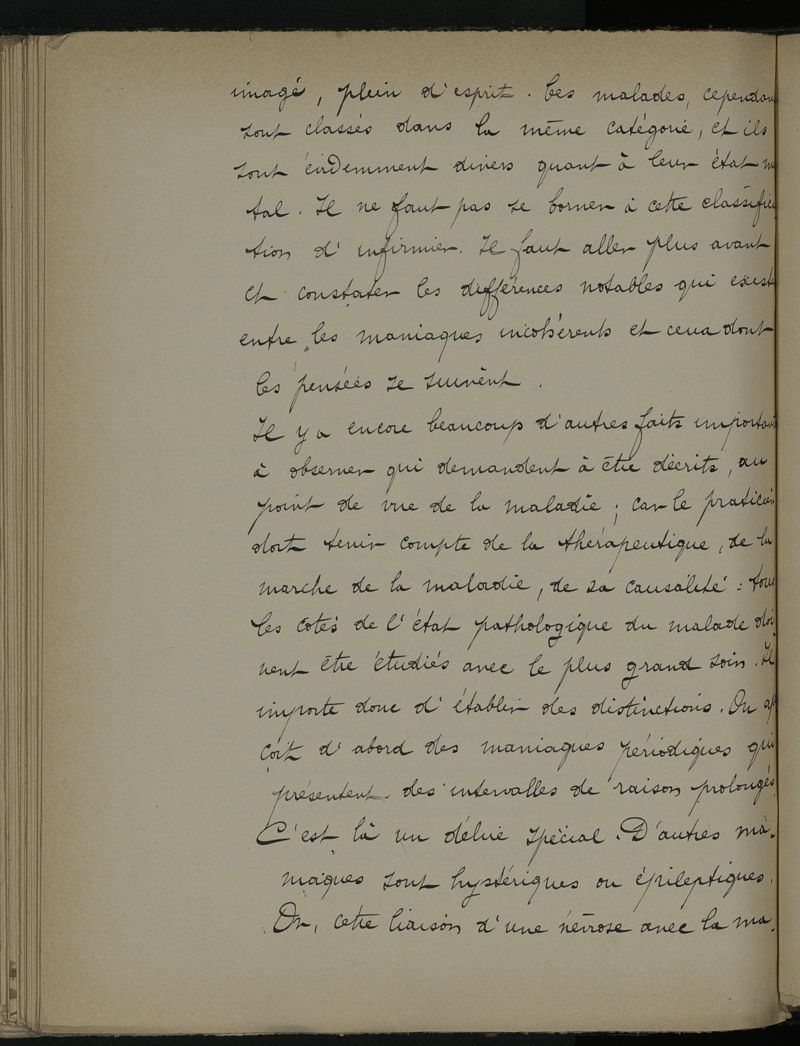 imagé, plein d'esprit. Ces malades, cependan
sont classés dans la même catégorie, et ils
sont évidemment divers quant à leur état m
tal. Il ne faut pas se borner à cette classifica
tion d'infirmier. Il faut aller plus avant
et constater les différences notables qui exist
entre les maniaques incohérents et ceux dont
les pensées se suivent.
Il y a encore beaucoup d'autres faits important
à observer qui demandent à être décrits, au
point de vue de la maladie ; car le praticien
doit tenir compte de la thérapeutique, de la
marche de la maladie, de sa causalité : tous
les cotés de l'état pathologique du malade doi
vent être étudiés avec le plus grand soin. Il
importe donc d'établir des distinctions. On ap
çoit d'abord des maniaques périodiques qui
présentent des intervalles de raison prolongés
C'est là un délire spécial. D'autres ma-
niaques sont hystériques ou épileptiques.
Or, cette liaison d'une névrose avec la ma-